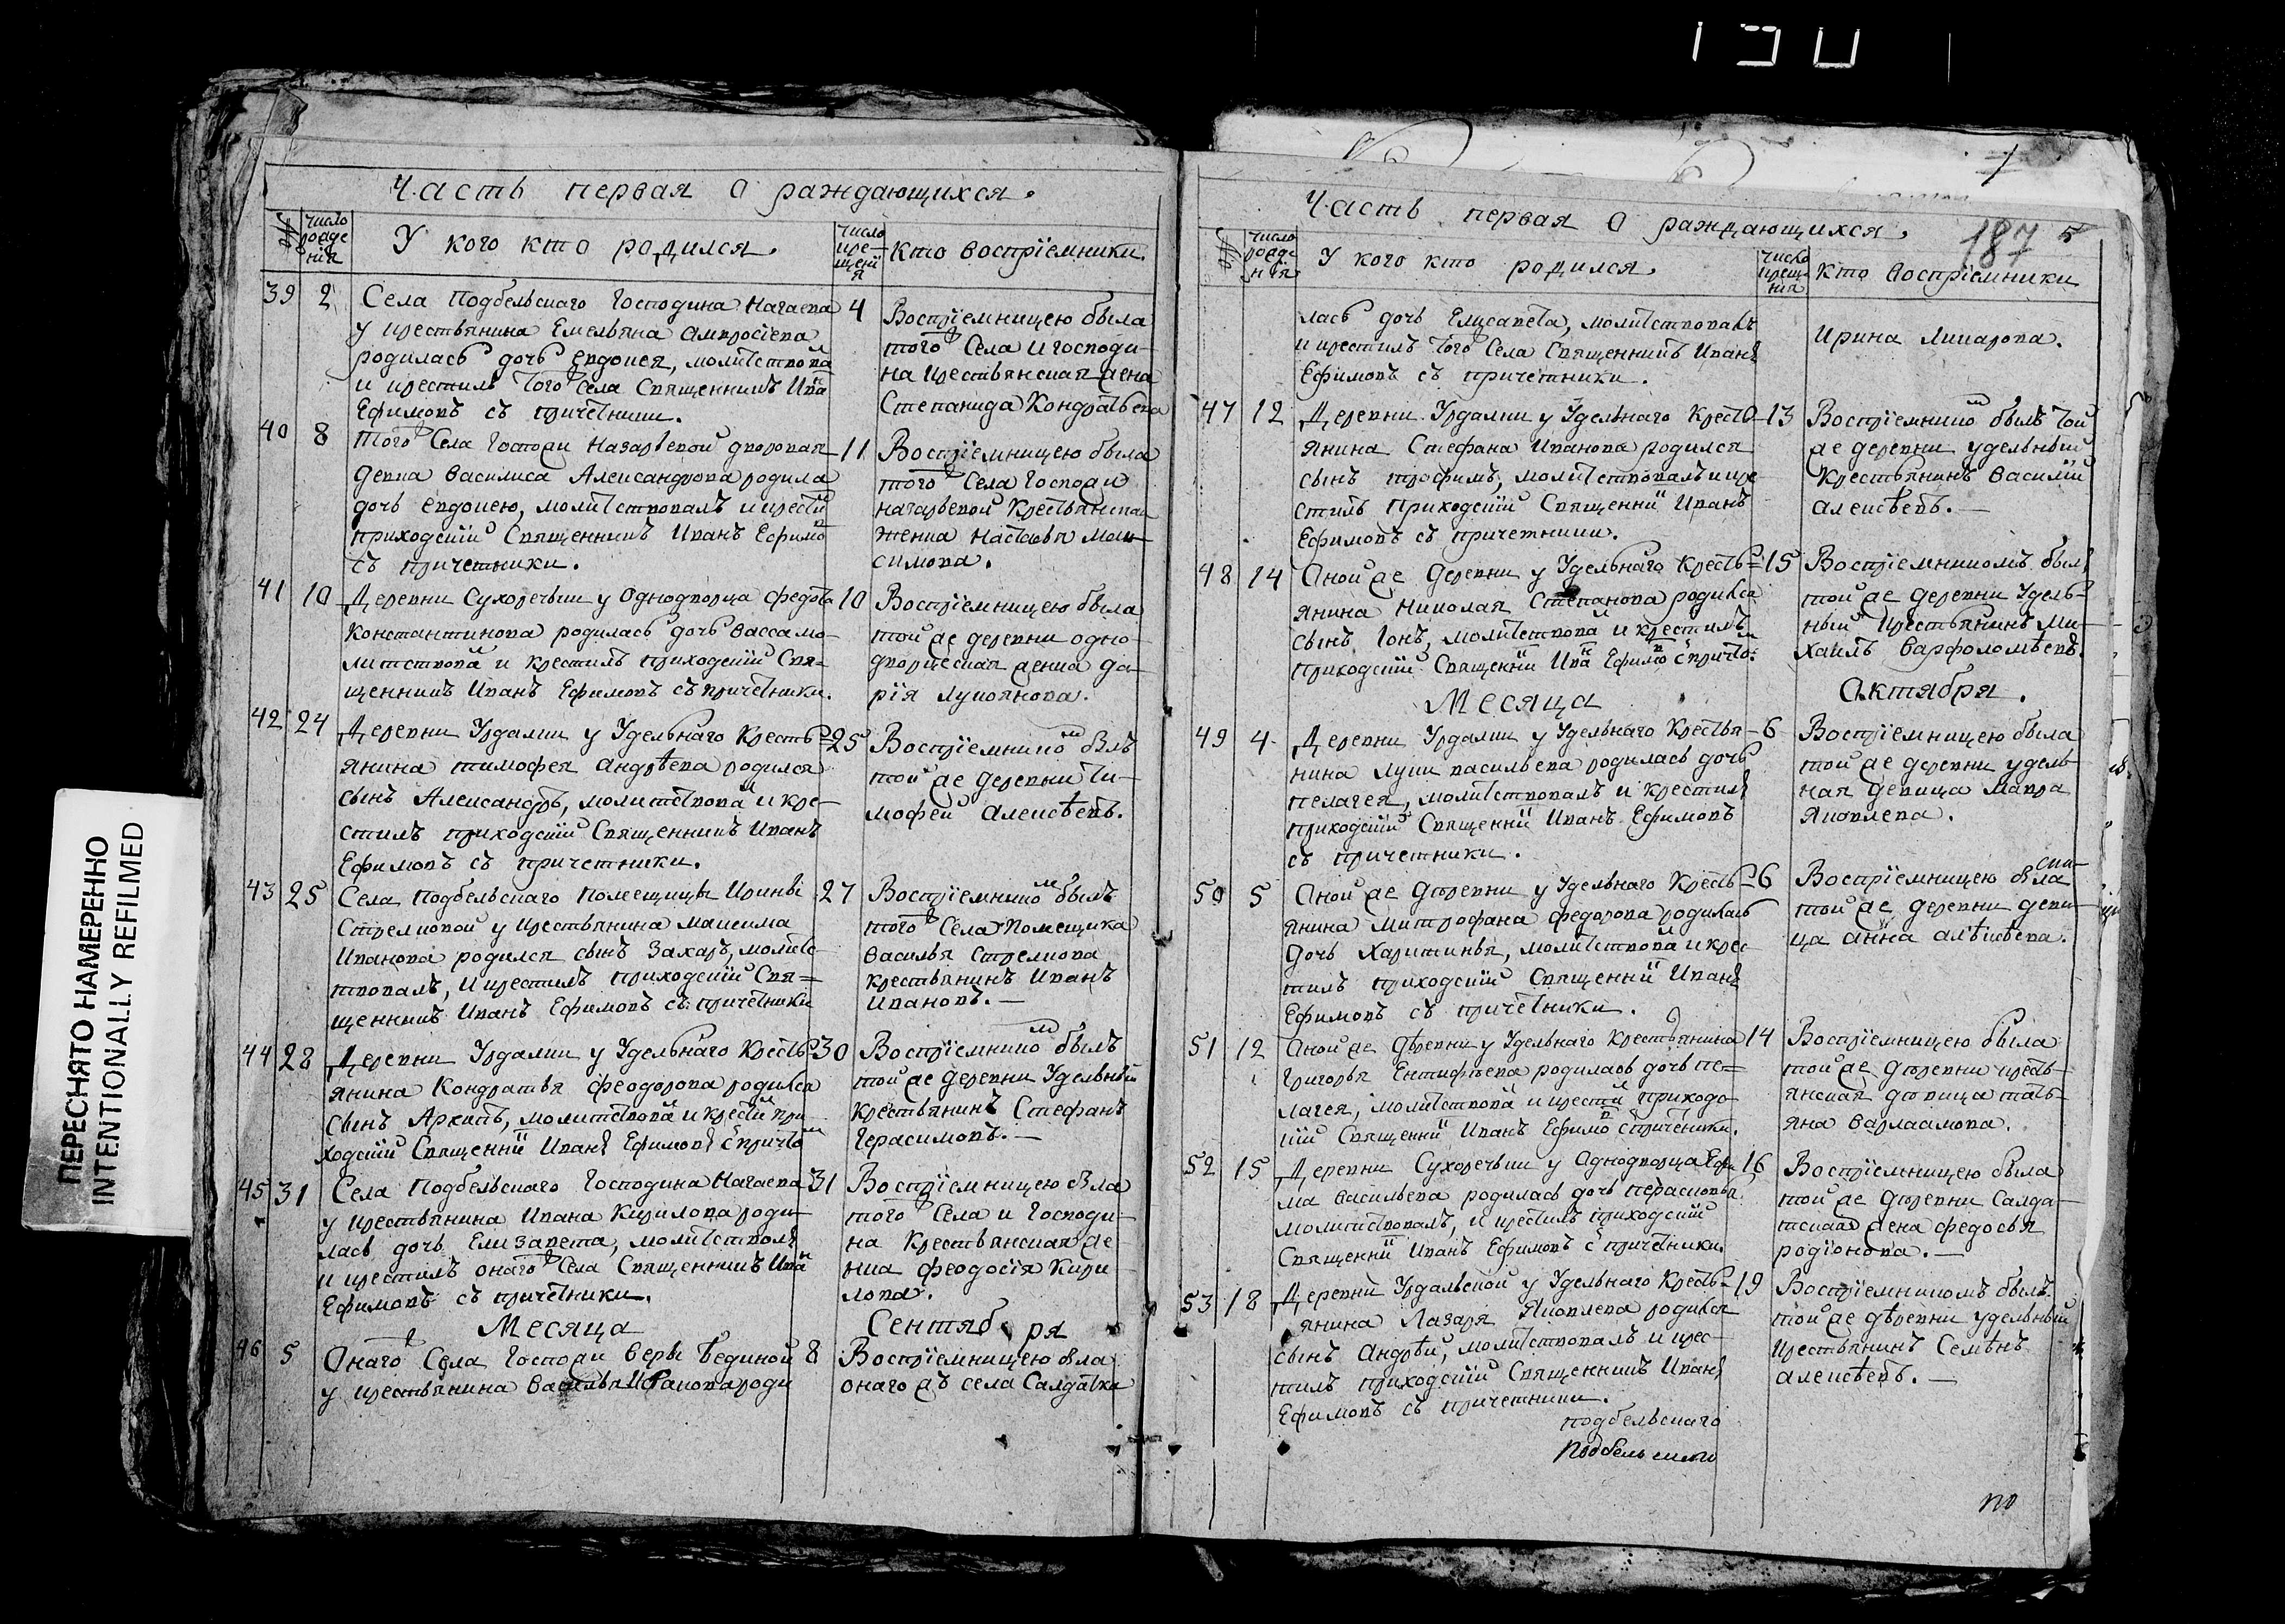 Часть первая о раждающихся.
№
число рожде нія
У кого кто родился.
число кре— щенї я
кто воспрїемники.
39 2 Села Подбельскаго Господина Нагаева 4
у крестьянина Емельяна Амвросіева
родилась дочь Евдокея, молитствова л
и крестилъ того села Священникъ Ива н
Ефимовъ съ причетники.
Воспрїемницею была
того Села и господи—
на крестьянская жена
Степанида Кондратьева
40 8 Того Села Господи Назарьевой дворовая 11
девка Василиса Александрова родила
дочь Евдокею, молитствовалъ и крести л
приходскій Священникъ Иванъ Ефимо в
съ причетники.
Воспрїемницею была
того Села Господи
Крестьянская
женка
симова.
41 10 Деревни Сухоречьки у Однодворца Федота 10
Константинова родилась дочь Васса мо—
литствова л и крестилъ приходскій Свя=
щенникъ Иванъ Ефимовъ съ причетники.
Воспрїемницею была
той же деревни одно—
дворческая женка да—
рїя Лукоянова.
42 24 Деревни Урдалки у Удельнаго Кресть= 25
янина Тимофея Андрѣева родился
сынъ Александръ, молитствова л и кре—
стилъ приходскій Священникъ Иванъ
Ефимовъ съ причетники.
Воспрїемнико м былъ
той же деревни Ти—
мофей Алексѣевъ.
43 25 Села Подбельскаго Помещицы Ирины 27
Стрелковой у крестьянина Максима
Иванова родился сынъ Захаръ, молитс
твовалъ, и крестилъ приходскій Свя=
щенникъ Иванъ Ефимовъ съ причетники
Воспрїемнико м былъ
того Села Помещика
Василья Стрелкова
крестьянинъ Иванъ
Ивановъ.—
44 28 Деревни Урдалки у Удельнаго Кресть= 30
янина Кондратья Феодорова родился
сынъ Архипъ, молитствова л и крести л при—
ходскій Священни к Иванъ Ефимовъ с причт о м
Воспрїемнико м былъ
той же деревни Удельный
Крестьянинъ Стефанъ
Герасимовъ.—
45 31 Села Подбельскаго Господина Нагаева 31
у крестьянина Ивана Кирилова роди—
лась дочь Елизавета, молитствовалъ
и крестилъ онаго Села Священникъ Ива н
Ефимовъ съ причетники.
Воспрїемницею была
того Села и Господи—
на Крестьянская же—
нка Феодосія Кири—
лова.
Месяца Сентября
46 5 Онаго Села Господи Веры 8
у крестьянина роди
Воспрїемницею была
онаго жъ села Салдатка
Часть первая о раждающихся.
187 5
№
число рожде нія
У кого кто родился.
число креще нія
Кто воспрїемники
лась дочь Елисавета, молитствовалъ
и крестилъ того Села Священникъ Иванъ
Ефимовъ съ причетники.
Ирина Макарова.
47 12 Деревни Урдалки у Удельнаго Кресть 13
янина Стефана Иванова родился
сынъ Трофимъ, молитствовалъ и кре
стилъ Приходскій Священни к Иванъ
Ефимовъ съ причетники.
Воспрїемнико м былъ той
же деревни удельный
Крестьянинъ Василій
Алексѣевъ.—
48 14 Оной же деревни у Удельнаго Кресть= 15
янина Николая Степанова родился
сынъ Іонъ, молитствова л и крестилъ
приходскій Священни к Ива н Ефимо в с причто м.
Воспрїемникомъ былъ
той же деревни Удель—
ный Крестьянинъ Ми—
хаилъ Варфоломѣевъ.
Месяца Октября.
49 4 Деревни Урдалки у Удельнаго Крестья— 6
нина Луки Васильева родилась дочь
Пелагея, молитствовалъ и крестилъ
приходскій Священни к Иванъ Ефимовъ
съ причетники.
Воспрїемницею была
той же деревни удель
ная девица Мавра
Яковлева.
50 5 Оной же Деревни у Удельнаго Кресть= 6
янина Митрофана Федорова родилась
Дочь Харитинья, молитствова л и крес
тилъ приходскій Священни к Иванъ
Ефимовъ съ причетники.
Воспрїемницею была
той же деревни деви—
ца Анна Алѣксѣева.
51 12 Оной же Деревни у Удельнаго Крестьянина 14
Григорья Ентифѣева родилась дочь Пе=
лагея, молитствова л и крести л приходс
кій Священни к Иванъ Ефимо в с причетники.
Воспрїемницею была
той же деревни кресть—
янская девица Тать—
яна Варлаамова.
52 15 Деревни Сухоречьки у Однодворца Ефи 16
ма Васильева родилась дочь Парасковья
молитствовалъ, и крестилъ приходскій
Священни к Иванъ Ефимовъ с причетники.
Воспрїемницею была
той же Деревни Салда—
тская жена Федосья
Родїонова.—
53 18 Деревни Урдальской у Удельнаго Кресть= 19
янина Лазаря Яковлева родился
сынъ Андрѣй, молитствовалъ и крес—
тилъ приходскій Священникъ Иванъ
Ефимовъ съ причетники.
Воспрїемникомъ былъ
той же деревни удельный
крестьянинъ Семѣнъ
Алексѣевъ.—
подбельскаго
Подбельскаго
по
ПЕРЕСНЯТО НАМЕРЕННО
INTENTIONALLY REFILMED